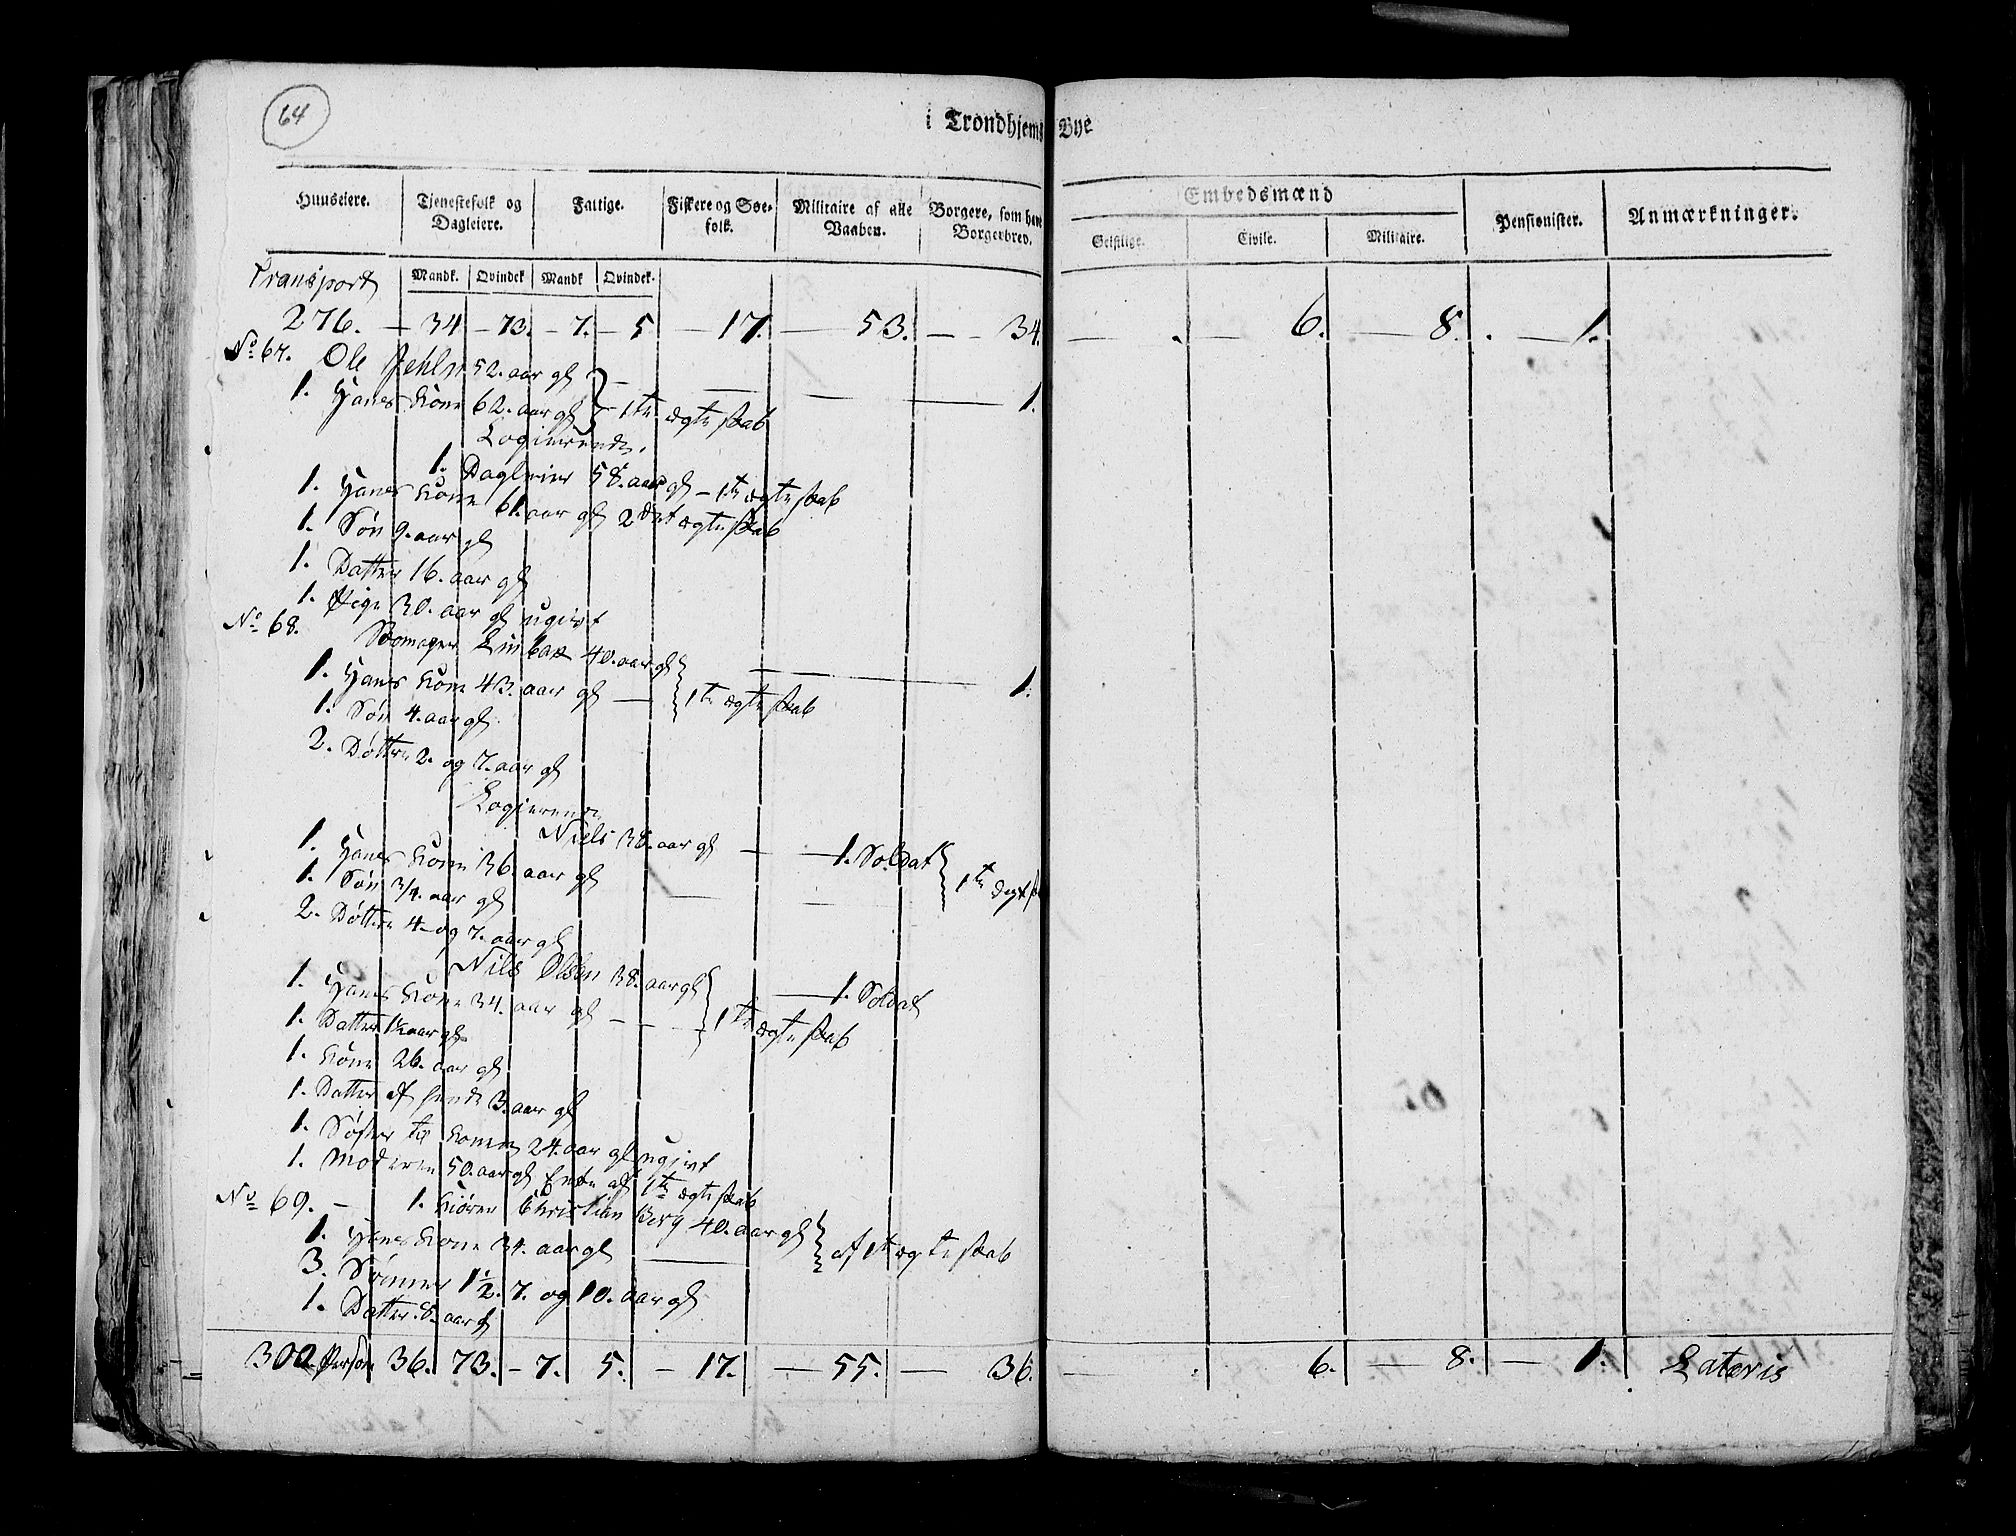 64
i Trondhjems Bye
Huuseiere. Tjenestefolk og Dagleiere. Fattige. Fiskere og Søefolk. Militaire af alle Vaaben. Borgere, som have Borgerbrev. Embedsmænd Geistlige. Civile. Militaire. Pensionister. Anmærkninger.
Mandk. Qvindek Mandk Qvindek.
Transport
276. — 34 — 73. — 7. — 5 — 17. — 53. — — 34. — . 6. — 8. . — 1.
No 67. Ole 52. aar gl
1. Hanes Kone 62. aar gl } 1te ægteskab — 1.
Logierende.
1. Dagleier 58. aar gl — 1te ægteskab
1. Hanes Kone 61. aar gl 2det ægteskab
1. Søn 9. aar gl
1. Datter 16. aar gl
1. Pige 30. aar gl ugivt
No 68. Skomager 40. aar gl
1. Hanes Kone 43. aar gl — } 1te ægteskab — 1.
1. Søn 4. aar gl
2. Døttre 2. og 7. aar gl
Logierende
Niels 38. aar gl — — 1. Soldat
1. Hanes Kone 36. aar gl } 1te ægtesk
1. Søn 3/4. aar gl
2. Døttre 4. og 7. aar gl
Nils Olsen 38. aar gl — 1. Soldat
1. Hanes Kone 34. aar gl — — } 1te ægteskab
1. Datter 1½ aar gl
1. Kone 26. aar gl
1. Datter af hende 3. aar gl
1. Søster til Konen 24. aar gl ugivt
1. Moderen 50. aar gl Enke af 1te ægteskab
No 69. — 1. Christian Berg 40. aar gl
1. Hanes Kone 34. aar gl — } af 1te ægteskab
3. Sønner 1½. 7. og 10. aar gl
1. Datter 8. aar gl
300 Person 36. 73. — 7. 5. — 17. — 55. — 36. — . 6. — 8. — 1. Lateris